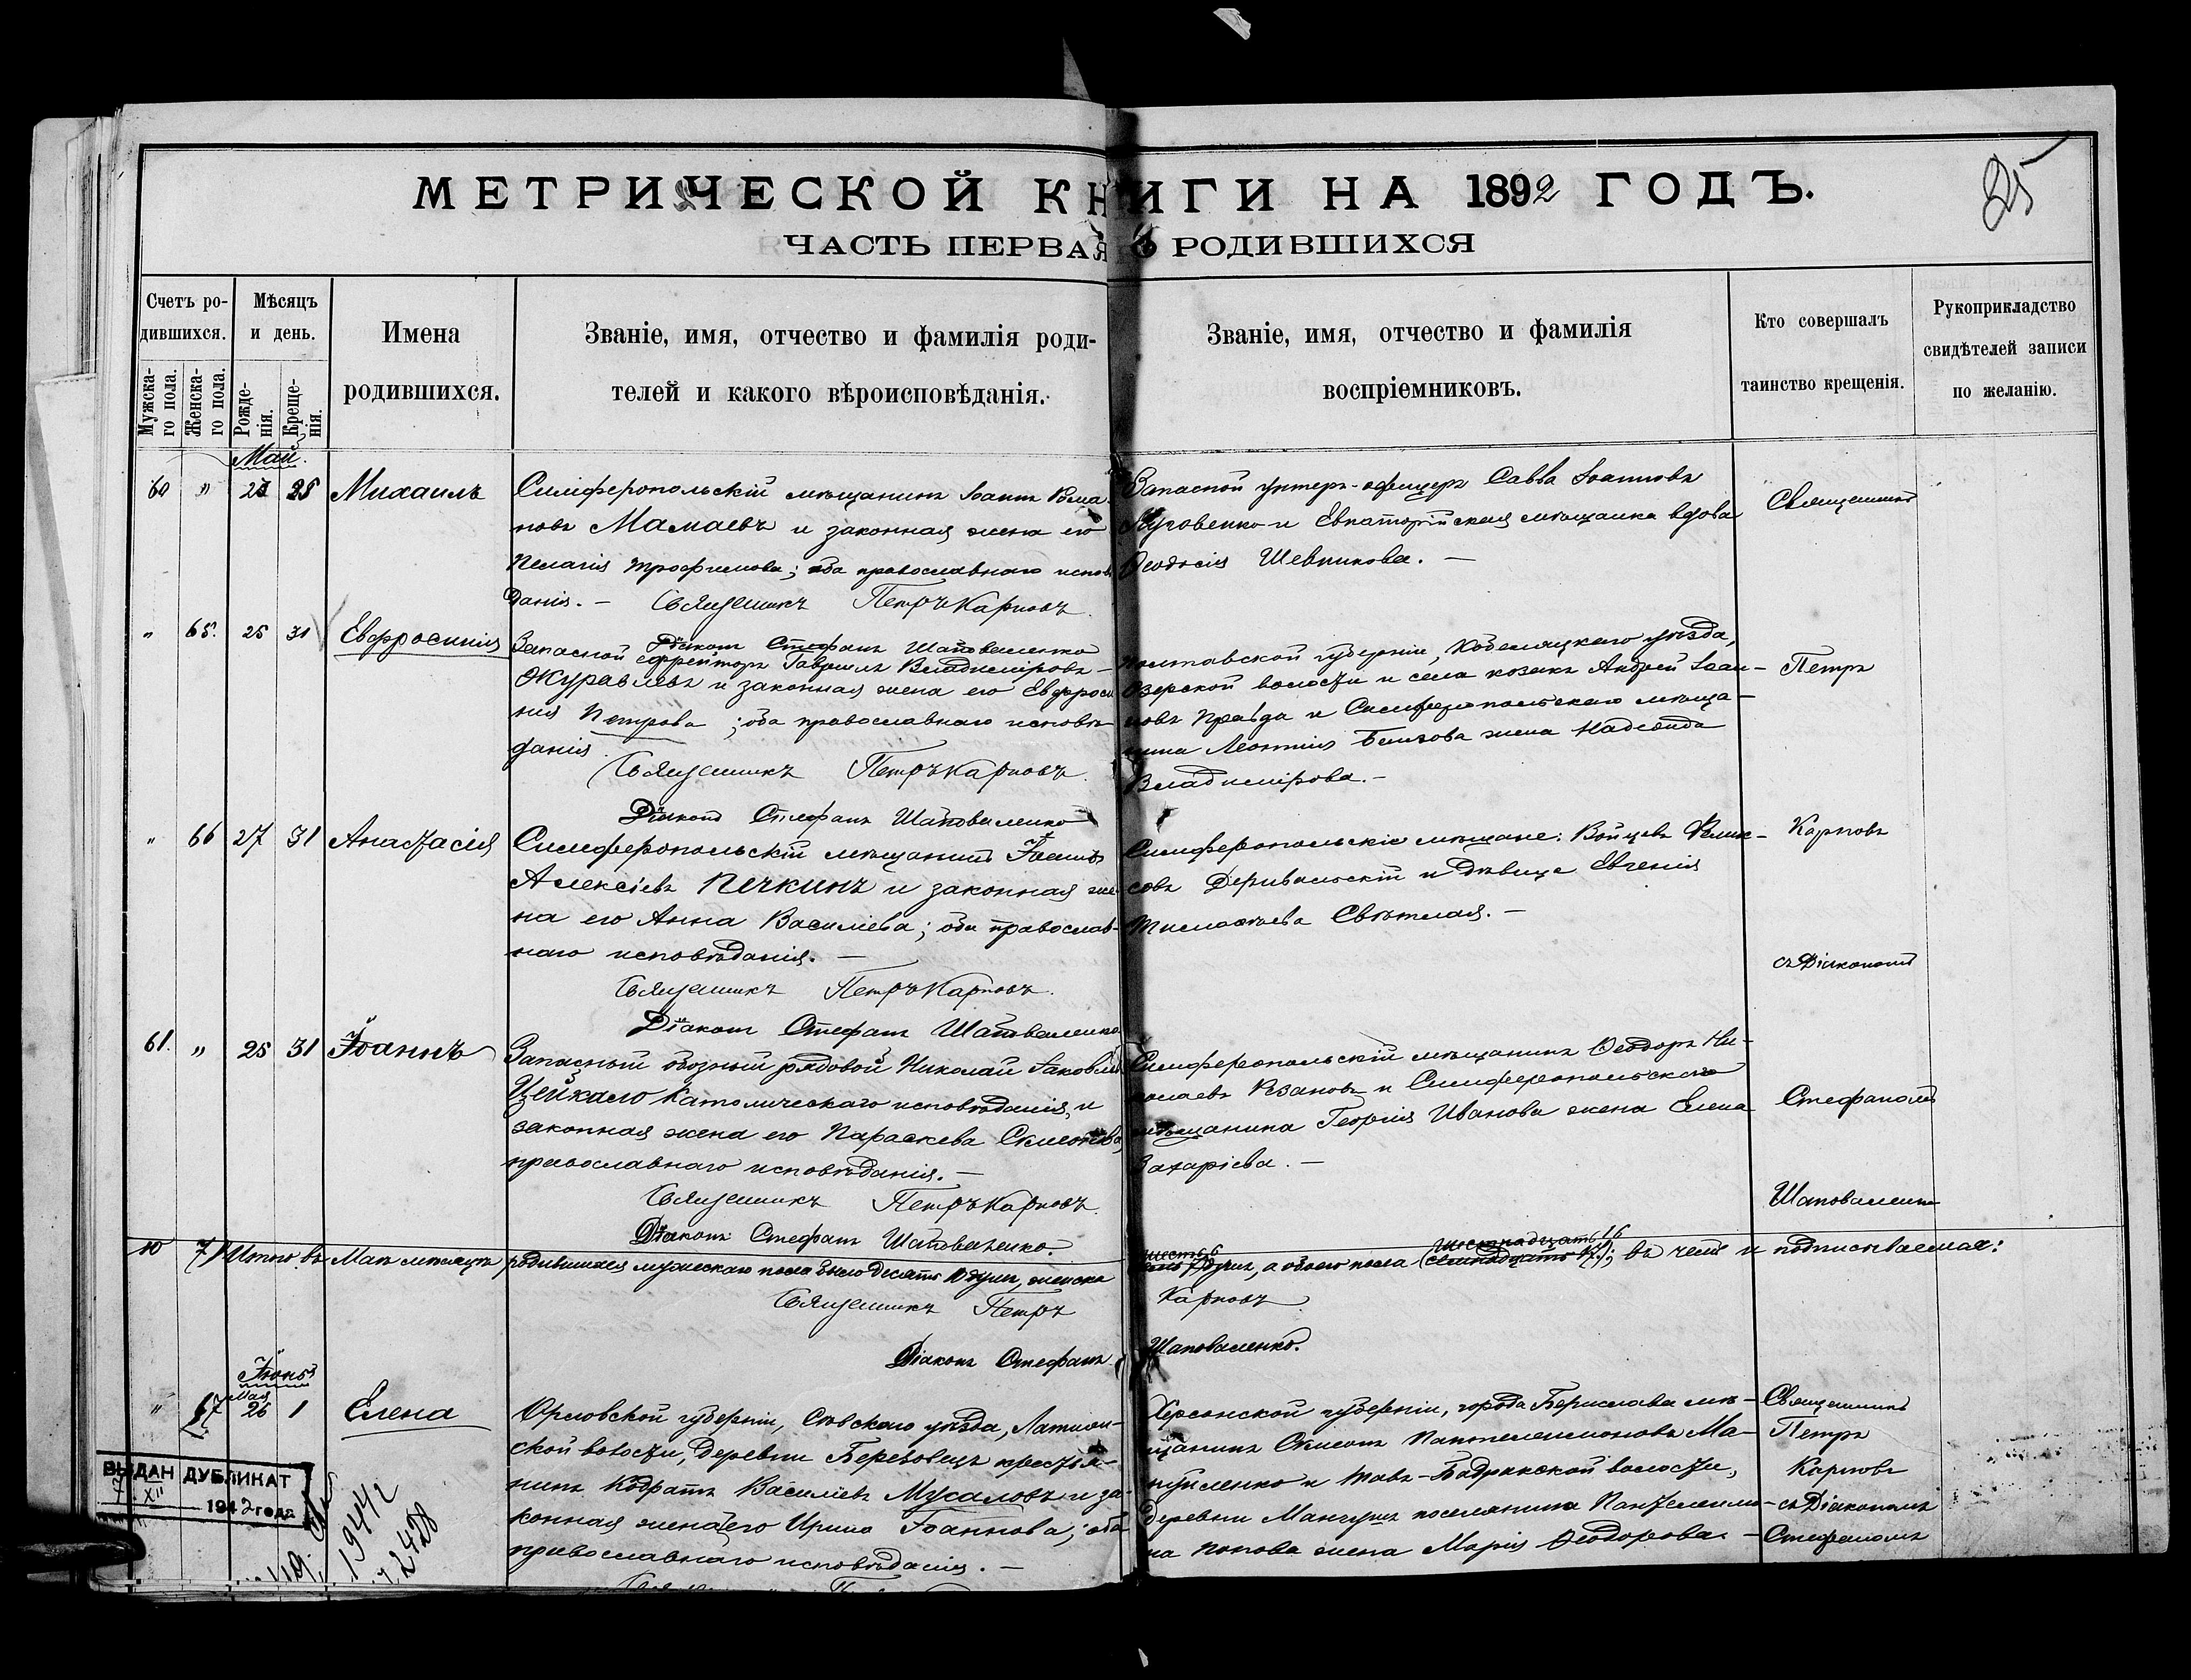 МЕТРИЧЕСКОЙ КНИГИ НА 1892 ГОДЪ.
25
ЧАСТЬ ПЕРВАЯ О РОДИВШИХСЯ
Счетъ ро-
дившихся.
Мужска-
го пола.
Женска-
го пола.
Мѣсяцъ
и день.
Рожде-
нія.
Креще-
нія.
Имена
родившихся.
Званіе, имя, отчество и фамилія роди-
телей и какого вѣроисповѣданія.
Званіе, имя, отчество и фамилія
воспріемниковъ.
Кто совершалъ
таинство крещенія.
Рукоприкладство
свидѣтелей записи
по желанію.
Май.
60 " 25 Михаилъ
Симферопольскій мѣщанинъ Іоаннъ Рома-
новъ Мамаевъ и законная жена его
Пелагія Трофимова; оба православнаго исповѣ-
данія. — Священникъ Петръ Карповъ
Діаконъ Стефанъ Шаповаленко
Запасной унтеръ-офицеръ Савва Іоанновъ
и Евпаторійская мѣщанка вдова
Ѳеодосія Шевникова. —
Священникъ
" 65. 25 31 Евфросинія
Запасной ефрейторъ Гавріилъ Владиміровъ
Журавлевъ и законная жена его Евфроси-
нія Петрова; оба православнаго исповѣ-
данія.
Священникъ Петръ Карповъ
Діаконъ Стефанъ Шаповаленко
Полтавской губерніи, Кобеляцкаго уѣзда,
Озерской волости и села козакъ Андрей Іоан-
новъ Правда и Симферопольскаго мѣща-
нина Леонтія жена Надежда
Владимірова. —
Петръ
" 66 27 31 Анастасія
Симферопольскій мѣщанинъ
Алексіевъ Печкинъ и законная же-
на его Анна Василіева; оба православ-
наго исповѣданія. —
Священникъ Петръ Карповъ
Діаконъ Стефанъ Шаповаленко
Симферопольскіе мѣщане: Войцехъ Феликс-
овъ и дѣвица Евгенія
Свѣтлая. —
Карповъ
съ Діакономъ
61. " 25 31 Іоаннъ
Запасный обозный рядовой Николай Іаковлевъ
Цейкало католическаго исповѣданія, и
законная жена его Параскева Симонова,
православнаго исповѣданія. —
Священникъ Петръ Карповъ
Діаконъ Стефанъ Шаповаленко.
Симферопольскій мѣщанинъ Ѳеодоръ Ни-
колаевъ и Симферопольскаго
мѣщанина Георгія Иванова жена Елена
Захаріева. —
Стефаномъ
Шаповаленко
10 7 Итого въ Маѣ мѣсяцѣ родившихся мужескаго пола было десять 10 душъ, женска
шесть 6 душъ, а обоего пола шестнадцать 16 (семнадцать 17); въ чемъ и подписываемся:
Священникъ Петръ Карповъ
Діаконъ Стефанъ Шаповаленко.
Іюнь
Мая
" 67 26 1 Елена
Орловской губерніи, Сѣвскаго уѣзда,
ской волости, деревни Березовецъ крестья-
нинъ Кодратъ Василіевъ Мусаловъ и за-
конная жена его Ирина Іоаннова; оба
православнаго исповѣданія. —
Херсонской губерніи, города Берислава мѣ-
щанинъ Симеонъ Пантелеимоновъ Ма-
нуйленко и волости,
деревни Мангушъ поселянина Пантелеимо-
на Попова жена Марія Ѳеодорова. —
Священникъ
Петръ
Карповъ
съ Діакономъ
Стефаномъ
ВЫДАН ДУБЛИКАТ
7 XII 1942 года
1944 г